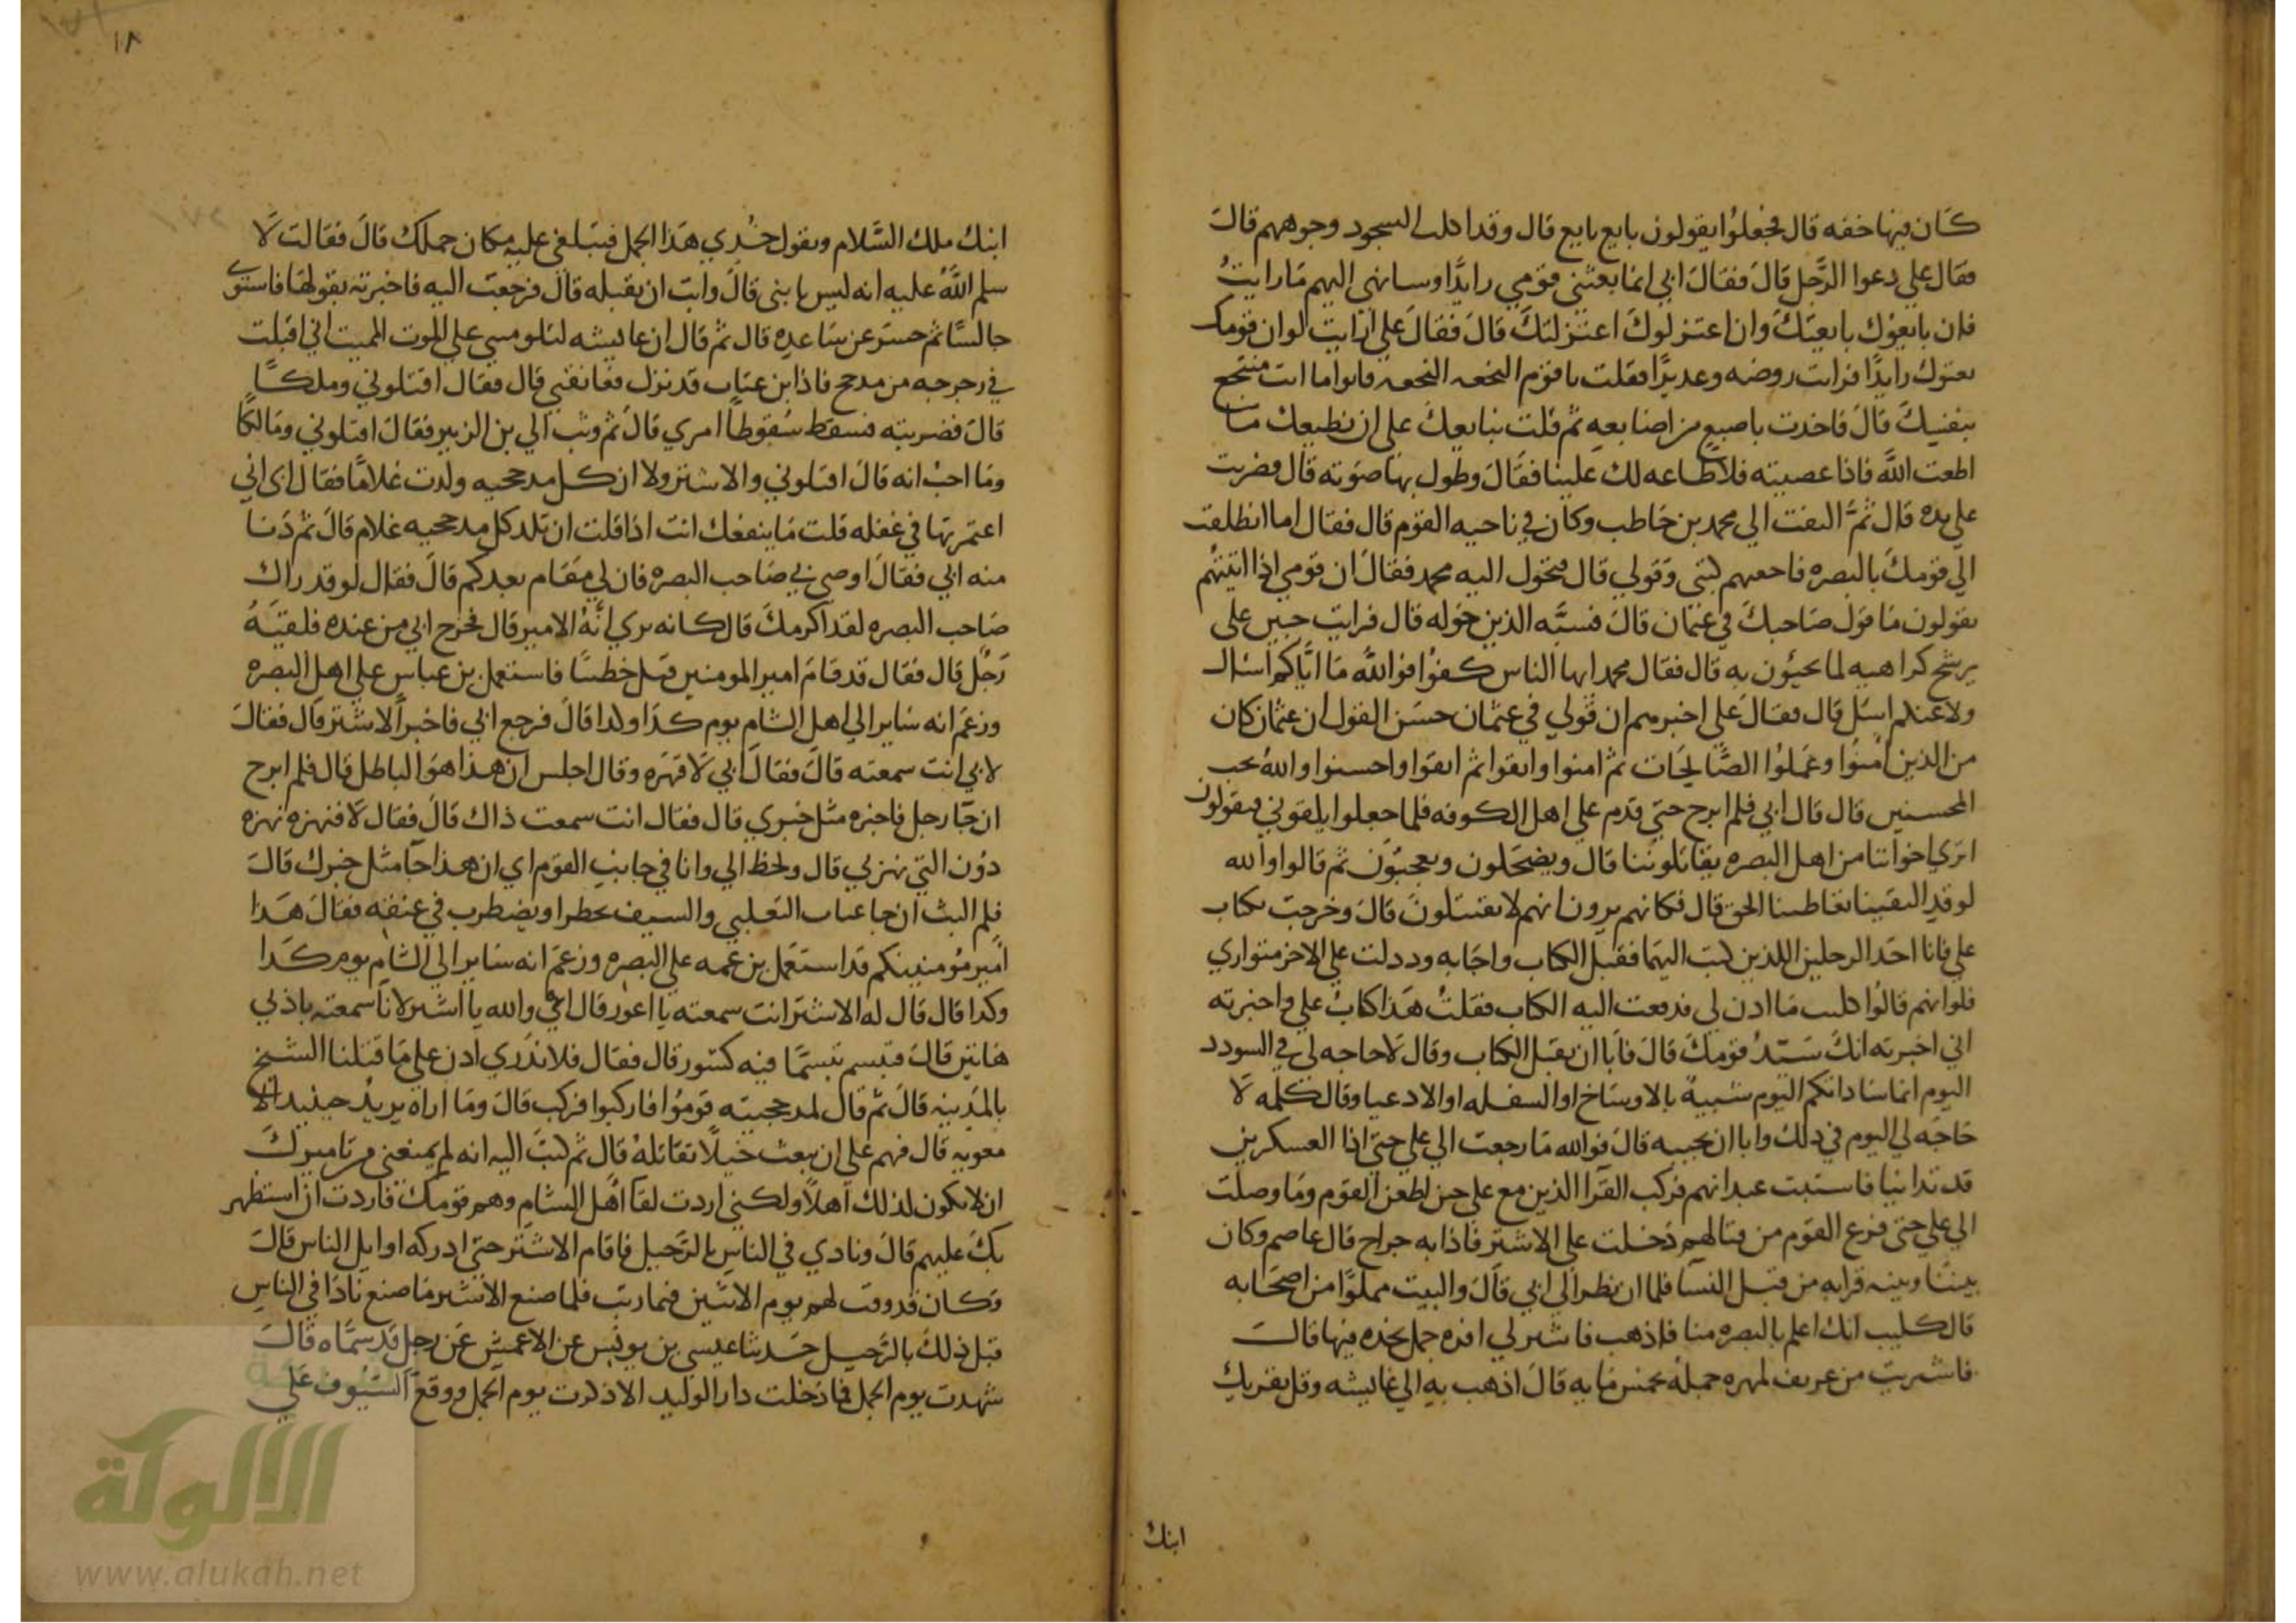 كان فيها خفه قال فجعلوا يقولون بايع بايع قال وقد اكلت السجود وجوههم قال
فقال علي دعوا الرجل قال فقال ابي انما بعثني قومي رايدا وسانهى اليهم ما رايت
فان بايعوك بايعتك وان اعتزلوك اعتزلتك قال فقال علي ارايت لو ان قومك
بعثوك رايدا فرايت روضه وغديرا فقلت يا قوم النجعه النجعه فابوا ما انت منتجع
بنفسك قال فاخذت باصبع من اصابعه ثم قلت نبايعك على ان نطيعك ما
اطعت الله فاذا عصيته فلا طاعه لك علينا فقال وطول بها صوته قال فضربت
على يده قال ثم التفت الي محمد بن حاطب وكان في ناحيه القوم قال فقال اما انطلقت
الي قومك بالبصره فابلغهم كتبي وقولي قال فتحول اليه محمد فقال ان قومي اذا اتيتهم
يقولون ما قول صاحبك في عثمان قال فسبه الذين حوله قال فرايت جبين علي
يرشح كراهيه لما يجيون به قال فقال محمد ايها الناس كفوا فوالله ما اياكم اسال
ولا عنكم اسل قال فقال علي اخبرهم ان قولي في عثمان حسن القول ان عثمان كان
من الذين امنوا وعملوا الصالحات ثم امنوا واتقوا ثم اتقوا واحسنوا والله يحب
المحسنين قال قال ابي فلم ابرح حتي قدم علي اهل الكوفه فلما جعلوا يلقوني فيقولون
اترى اخواننا من اهل البصره يقاتلوننا قال ويضحكون ويعجبون ثم قالوا والله
لو قد التقينا تعاطينا الحق قال فكانهم يرون انهم لا يقتتلون قال وخرجت بكتاب
علي فانا احد الرجلين اللذين كتب اليهما فقبل الكتاب واجابه ودللت علي الاخر متواري
فلو انهم قالوا كليب ما اذن لي فدفعت اليه الكتاب فقلت هذا كتاب علي واخبرته
اني اخبرته انك سيد قومك قال فابا ان يقبل الكتاب وقال لا حاجه لي في السودد
اليوم انما ساداتكم اليوم شبيه بالاوساخ او السفله او الادعيا وقال كلمه لا
حاجه لي اليوم في ذلك وابا ان يجيبه قال فوالله ما رجعت الي علي حتي اذا العسكرين
قد تدانيا فاستبت عبدانهم فركب القرا الذين مع علي حين اطعن القوم وما وصلت
الي علي حتى فرغ القوم من قتالهم دخلت علي الاشتر فاذا به جراح قال عاصم وكان
بيننا وبينه قرابه من قبل النسا فلما ان نظر الى ابي قال والبيت مملوا من اصحابه
قال كليب انك اعلم بالبصره منا فاذهب فاشتر لي افره جمل تجده فيها قال
فاشتريت من عريف لمهره جمله بخمس مايه قال اذهب به الي عايشه وقل يقريك
ابنك
١٨
ابنك ملك السلام ويقول خذي هذا الجمل فتبلغي عليه مكان جملك قال فقالت لا
سلم الله عليه انه ليس بابنى قال وابت ان تقبله قال فرجعت اليه فاخبرته بقولها فاستوى
جالسا ثم حسر عن ساعده قال ثم قال ان عايشه لتلومني علي الموت المميت اني اقبلت
في رجرجه من مدحج فاذا ابن عتاب قد نزل فعانقني قال فقال اقتلوني وملكا
قال فضربته فسقط سقوطا امري قال ثم وثب الي بن الزبير فقال اقتلوني ومالكا
وما احب انه قال اقتلوني والاشتر ولا ان كل مدحجيه ولدت غلاما فقال ابي اني
اعتمرتها في غفله قلت ما ينفعك انت اذا قلت ان تلد كل مدحجيه غلام قال ثم دنا
منه ابي فقال اوصي بي صاحب البصره فان لي مقام بعدكم قال فقال لو قد راك
صاحب البصره لقد اكرمك قال كانه يري انه الامير قال فخرج ابي من عنده فلقيه
رجل قال فقال قد قام امير المومنين قبل خطيبا فاستعمل بن عباس علي اهل البصره
وزعم انه ساير الي اهل الشام يوم كذا وكذا قال فرجع ابي فاخبر الاشتر قال فقال
لابي انت سمعته قال فقال ابي لا فنهره وقال اجلس ان هذا هو الباطل قال فلم ابرح
ان جا رجل فاخبره مثل خبري قال فقال انت سمعت ذاك قال فقال لا فنهره نهره
دون التي نهرني قال ولحظ الي وانا في جانب القوم اي ان هذا جا مثل خبرك قال
فلم البث ان جا عتاب التغلبي والسيف يخطر او يضطرب في عنقه فقال هذا
امير مومنينكم قد استعمل بن عمه علي البصره وزعم انه ساير الي الشام يوم كذا
وكذا قال قال له الاشتر انت سمعته يا اعور قال اي والله يا اشتر لانا سمعته باذني
هاتين قال فتبسم تبسما فيه كشور قال فقال فلا ندري اذن علي ما قتلنا الشيخ
بالمدينه قال ثم قال لمدحجيته قوموا فاركبوا فركب قال وما اراه يريد حينيذ الا
معويه قال فهم علي ان يبعث خيلا تقاتله قال ثم كتب اليه انه لم يمنعني من تاميرك
ان لا تكون لذلك اهلا ولكني اردت لقا اهل الشام وهم قومك فاردت ان استظهر
بك عليهم قال ونادي في الناس بالرحيل فاقام الاشتر حتي ادركه اوايل الناس قال
وكان قد وقت لهم يوم الاثنين فيما رايت فلما صنع الاشتر ما صنع نادا في الناس
قبل ذلك بالرحيل حدثنا عيسي بن يونس عن الاعمش عن رجل قد سماه قال
شهدت يوم الجمل فما دخلت دار الوليد الا ذكرت يوم الجمل ووقع السيوف علي
الالوكة
www.alukah.net